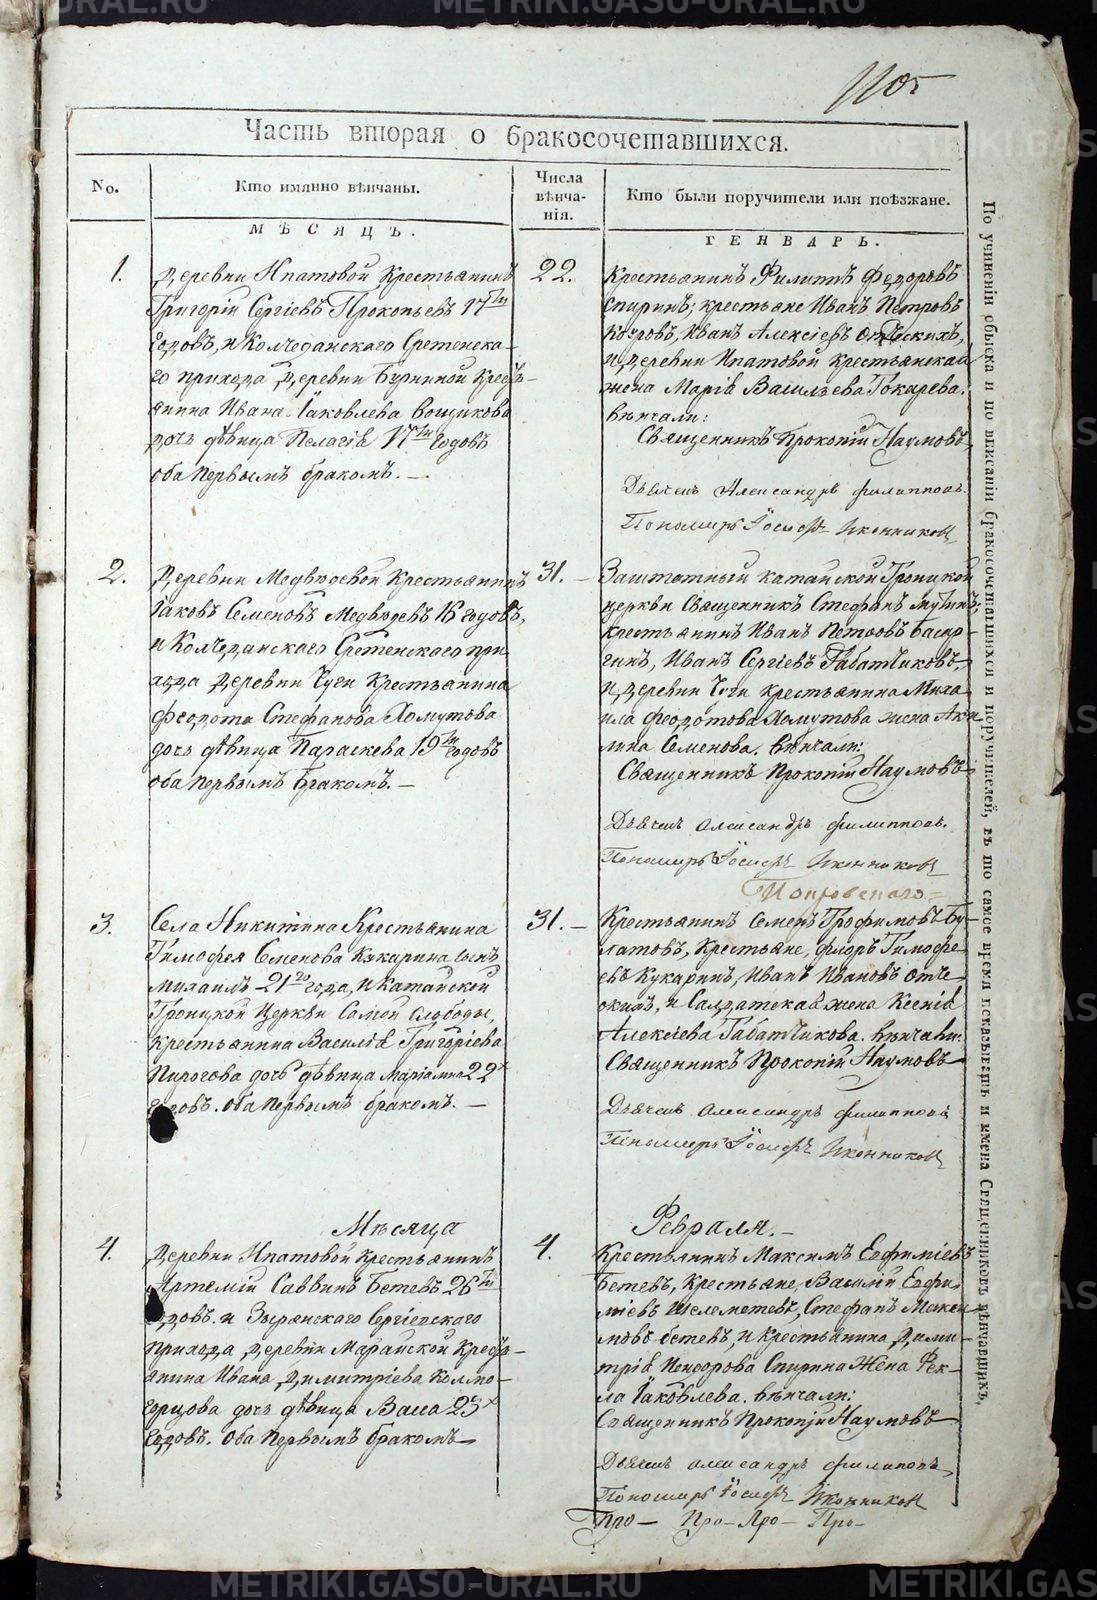 METRIKI.GASO-URAL.RU
1105
Часть вторая о бракосочетавшихся.
No.
Кто имянно вѣнчаны.
Числа вѣнча-
нія.
Кто были поручители или поѣзжане.
МѢСЯЦЪ.
ГЕНВАРЬ.
1.
Деревни Ипатовой крестьянинъ
Григорій Сергіевъ Прокопьевъ 17ти
годовъ, и Колчеданскаго Сретенска-
го прихода деревни Бурниной крест-
янина Ивана Іаковлева Вощикова
дочь дѣвица Пелагія 17ти годовъ
оба первымъ бракомъ. —
22.
Крестьянинъ Филиппъ Федоровъ
Спиринъ, крестьяне Иванъ Петровъ
Иванъ Алексіевъ
и деревни Ипатовой крестьянская
жена Марія Васильева Токарева.
вѣнчали:
Священникъ Прокопій Наумовъ
Дьячекъ Александръ Филипповъ.
Пономарь Іосифъ Иконниковъ
2.
Деревни Медвѣдевой крестьянинъ
Іаковъ Семеновъ Медвѣдевъ 16 годовъ,
и Колчеданскаго Сретенскаго при-
хода деревни Чуги крестьянина
Феодота Стефанова Хомутова
дочь дѣвица Параскева 19ти годовъ
оба первымъ бракомъ. —
31. —
Заштатный Катайской Троицкой
церкви Священникъ Стефанъ
крестьянинъ Иванъ Петровъ Басар-
гинъ, Иванъ Сергіевъ Табатчиковъ
и деревни Чуги крестьянина Миха-
ила Феодотова Хомутова жена Аки-
лина Семенова. вѣнчали:
Священникъ Прокопій Наумовъ
Дьячекъ Александръ Филипповъ.
Пономарь Іосифъ Иконниковъ
Покровскаго
3.
Села Никитина крестьянина
Тимофея Семенова Кукарина сынъ
Михаилъ 21го года, и Катайской
Троицкой церкви самой слободы,
крестьянина Василія Григоріева
Пирогова дочь дѣвица Маріамна 22х
годовъ. оба первымъ бракомъ. —
31. —
Крестьянинъ Семенъ Трофимовъ Бу-
латовъ, крестьяне, Флоръ Тимофе-
евъ Кукаринъ, Иванъ Ивановъ
и салдатская жена Ксенія
Алексіева Табатчикова. вѣнчали:
Священникъ Прокопій Наумовъ
Дьячекъ Александръ Филипповъ
Пономарь Іосифъ Иконниковъ
Мѣсяца
Февраля. —
4.
Деревни Ипатовой крестьянинъ
Артемій Саввинъ Бетевъ 26ти
годовъ. и Зырянскаго Сергіевскаго
прихода деревни Марайской крест-
янина Ивана Димитріева Колмо-
горцова дочь дѣвица Васса 23х
годовъ. оба первымъ бракомъ —
4.
Крестьянинъ Максимъ Евфиміевъ
Бетевъ, крестьяне, Василій Евфи-
міевъ Шелеметевъ, Стефанъ Макси-
мовъ Бетевъ, и крестьянина Дими-
трія Исидорова Спирина жена Фек-
ла Іаковлева. вѣнчали:
Священникъ Прокопій Наумовъ
Дьячекъ Александръ Филиповъ,
Пономарь Іосифъ Иконниковъ
Про — Про — Про — Про —
По учиненіи обыска и по вписаніи бракосочетавшихся и поручителей, въ то самое время показывать и имена Священниковъ вѣнчавшихъ.